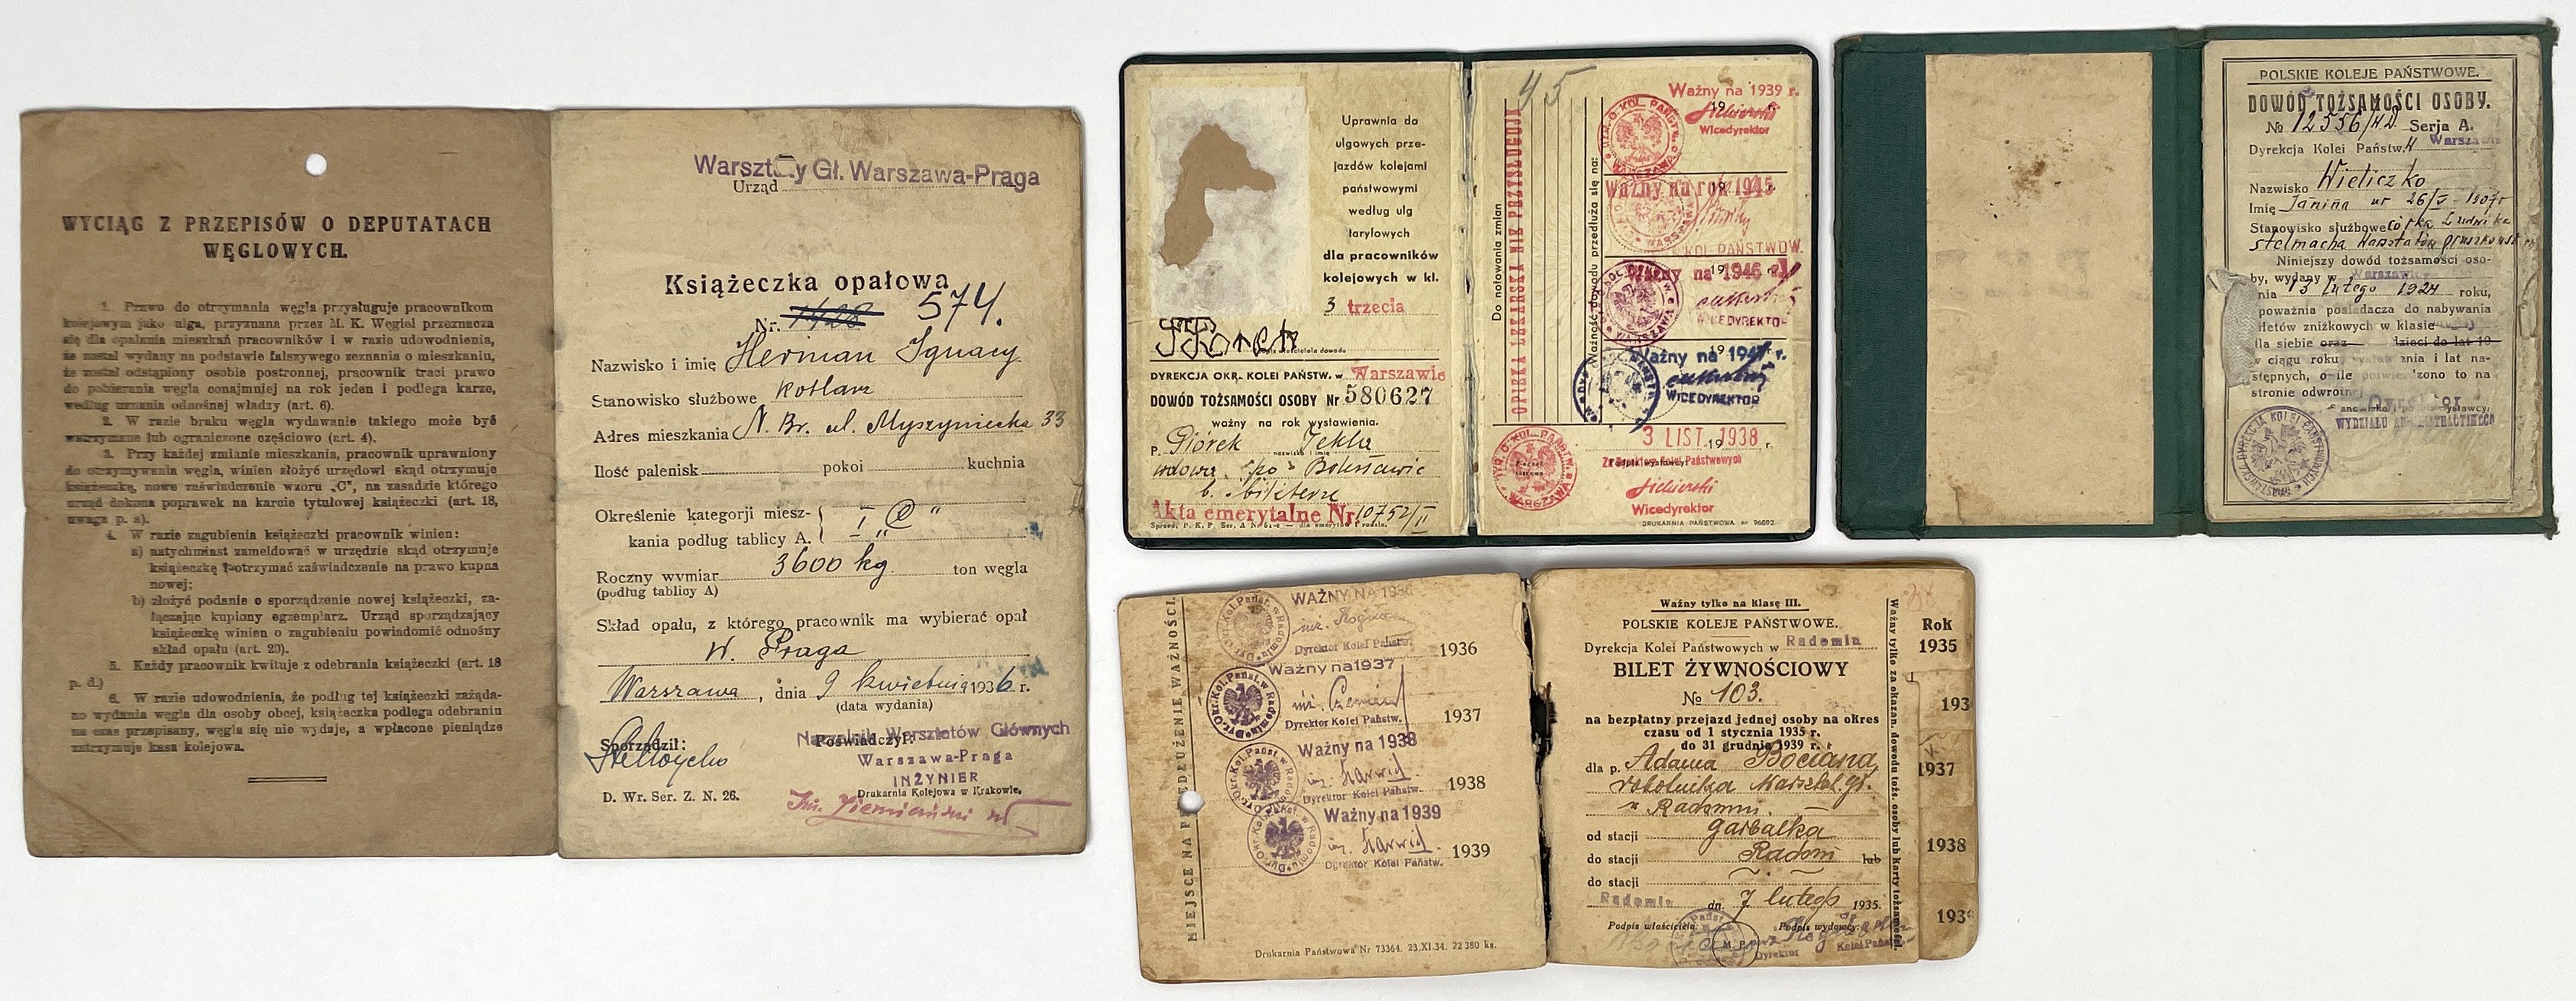 WYCIĄG Z PRZEPISÓW O DEPUTATACH
WĘGLOWYCH.
1. Prawo do otrzymania węgla przysługuje pracownikom
kolejowym jako ulga, przyznana przez M. K. Węgiel przeznacza
się dla opalania mieszkań pracowników i w razie udowodnienia,
że został wydany na podstawie fałszywego zeznania o mieszkaniu,
że został odstąpiony osobie postronnej, pracownik traci prawo
do pobierania węgla conajmniej na rok jeden i podlega karze,
według uznania odnośnej władzy (art. 6).
2. W razie braku węgla wydawanie takiego może być
wstrzymane lub ograniczone częściowo (art. 4).
3. Przy każdej zmianie mieszkania, pracownik uprawniony
do otrzymywania węgla, winien złożyć urzędowi skąd otrzymuje
książeczkę, nowe zaświadczenie wzoru „C", na zasadzie którego
urząd dokona poprawek na karcie tytułowej książeczki (art. 18,
uwaga p. a).
4. W razie zagubienia książeczki pracownik winien:
a) natychmiast zameldować w urzędzie skąd otrzymuje
książeczkę i otrzymać zaświadczenie na prawo kupna
nowej;
b) złożyć podanie o sporządzenie nowej książeczki, za-
łączając kupiony egzemplarz. Urząd sporządzający
książeczkę winien o zagubieniu powiadomić odnośny
skład opału (art. 20).
5. Każdy pracownik kwituje z odebrania książeczki (art. 18
p. d.)
6. W razie udowodnienia, że podług tej książeczki zażąda-
no wydania węgla dla osoby obcej, książeczka podlega odebraniu
na czas przepisany, węgla się nie wydaje, a wpłacone pieniądze
zatrzymuje kasa kolejowa.
Warsztaty Gł. Warszawa-Praga
Urząd
Książeczka opałowa
Nr. 1428 574.
Nazwisko i imię Herman Ignacy
Stanowisko służbowe kotlarz
Adres mieszkania N. Br. ul. Myszyniecka 33
Ilość palenisk pokoi kuchnia
Określenie kategorji miesz-
kania podług tablicy A. I „C"
Roczny wymiar 3600 kg ton węgla
(podług tablicy A)
Skład opału, z którego pracownik ma wybierać opał
W. Praga
Warszawa, dnia 9 kwietnia 1936 r.
(data wydania)
Sporządził: Poświadczył:
Naczelnik Warsztatów Głównych
Warszawa-Praga
INŻYNIER
D. Wr. Ser. Z. N. 26. Drukarnia Kolejowa w Krakowie.
Uprawnia do
ulgowych prze-
jazdów kolejami
państwowymi
według ulg
taryfowych
dla pracowników
kolejowych w kl.
3 trzecia
podpis właściciela dowodu
DYREKCJA OKR. KOLEI PAŃSTW. w Warszawie
DOWÓD TOŻSAMOŚCI OSOBY Nr 580627
ważny na rok wystawienia.
P. Piórek Tekla
nazwisko i imię
wdowa po Bolesławie
Akta emerytalne Nr 10752/II
Sprzed. P. K. P. Ser. A
45
Do notowania zmian
OPIEKA LEKARSKA NIE PRZYSŁUGUJE
Ważność dowodu przedłuża się na:
Ważny na 1939 r.
Wicedyrektor
Ważny na rok 1945
KOL. PAŃSTWOW.
Ważny na 1946 r.
WICEDYREKTOR
Ważny na 1947 r.
WICEDYREKTOR
3 LIST. 1938 r.
Podpis wystawcy
Wicedyrektor
DRUKARNIA PAŃSTWOWA nr 96692
POLSKIE KOLEJE PAŃSTWOWE.
DOWÓD TOŻSAMOŚCI OSOBY.
No 12556/H.D. Serja A.
Dyrekcja Kolei Państw. Warszawie
Nazwisko Wieliczko
Imię Janina ur 26/V - 1907r
Stanowisko służbowe córka Ludwika
stelmacha
Niniejszy dowód tożsamości oso-
by, wydany w Warszawie
dnia 13 lutego 1924 roku,
upoważnia posiadacza do nabywania
biletów zniżkowych w klasie
dla siebie oraz dzieci do lat 10
w ciągu roku wystawienia i lat na-
stępnych, o ile potwierdzono to na
stronie odwrotnej.
Dyrektor
WYDZIAŁU ADMINISTRACYJNEGO
MIEJSCE NA PRZEDŁUŻENIE WAŻNOŚCI.
WAŻNY NA 1936
Dyrektor Kolei Państw. 1936
Ważny na 1937
Dyrektor Kolei Państw. 1937
Ważny na 1938
Dyrektor Kolei Państw. 1938
Ważny na 1939
Dyrektor Kolei Państw. 1939
Drukarnia Państwowa Nr 73364. 23.XI.34. 22 380 ks.
Ważny tylko na klasę III.
POLSKIE KOLEJE PAŃSTWOWE.
Dyrekcja Kolei Państwowych w Radomiu
BILET ŻYWNOŚCIOWY
No 103.
na bezpłatny przejazd jednej osoby na okres
czasu od 1 stycznia 1935 r.
do 31 grudnia 1939 r.
dla p. Adama Bociana,
robotnika Warszt. gł.
w Radomiu.
od stacji Garbatka
do stacji Radom lub
do stacji
Radomiu dn. 7 lutego 1935.
Podpis właściciela: Podpis wydawcy:
M. P.
Dyrektor Kolei Państw.
Ważny tylko za okazan. dowodu tożs. osoby lub karty tożsamości.
Rok
1935
193
1937
1938
193